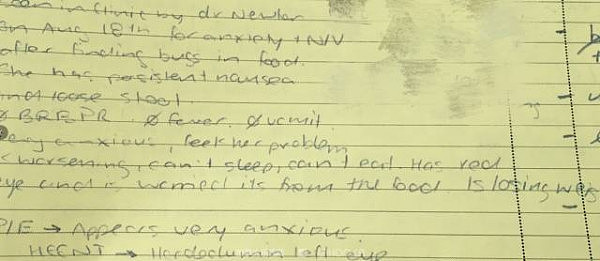 seen in clinic by dr Newlar
on Aug 18th for anxiety + N/V
after finding bugs in food.
She has persistent nausea
and loose stool.
Ø BRBPR. Ø fever. Ø vomit
Very anxious, feels her problem
is worsening, can't sleep, can't eat. Has red
eye and is worried its from the food. Is losing weig
P/E → Appears very anxious.
HEENT → in left eye